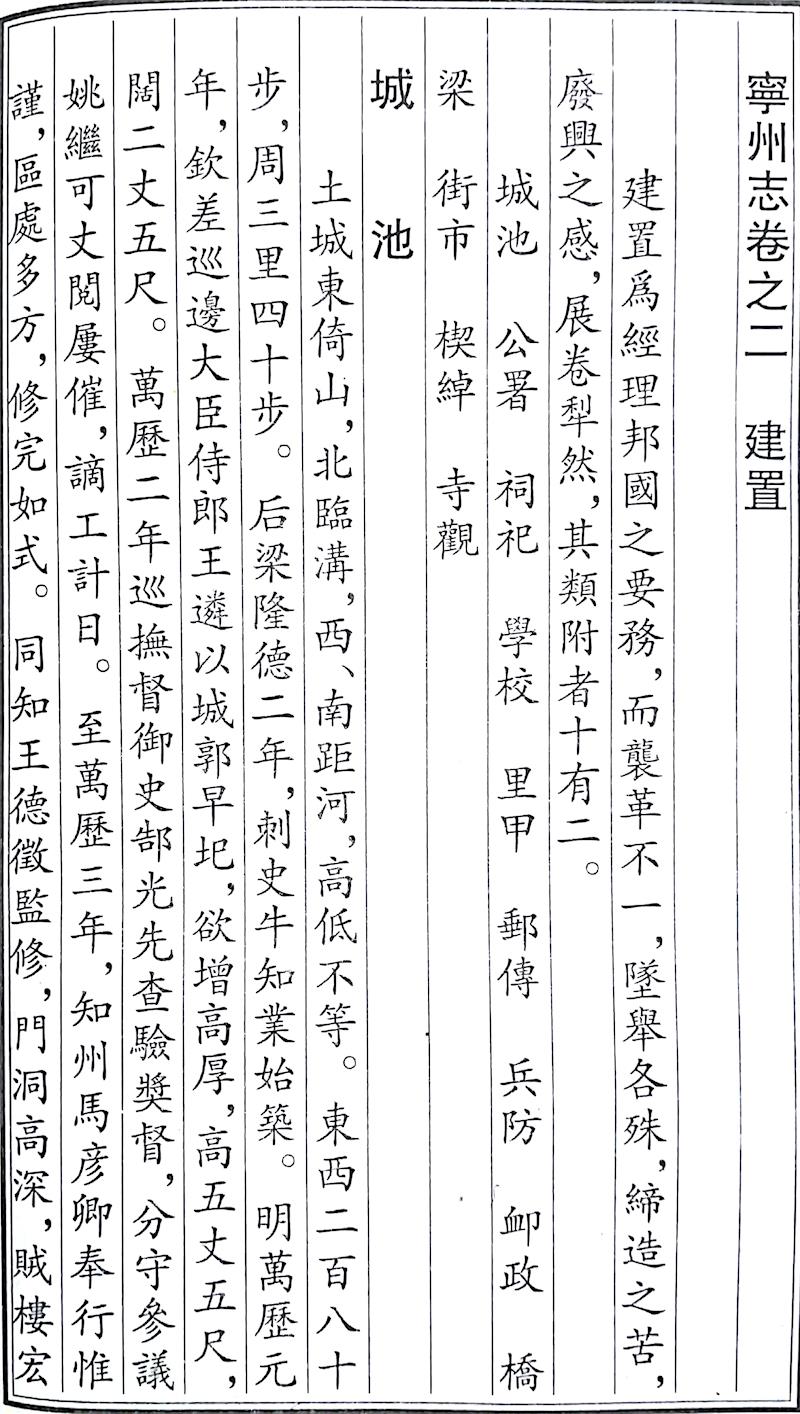 寧州志卷之二　建置
建置爲經理邦國之要務，而襲革不一，墜舉各殊，締造之苦，
廢興之感，展卷犁然，其類附者十有二。
城池　公署　祠祀　學校　里甲　郵傳　兵防　卹政　橋
梁　街市　楔綽　寺觀
城　池
土城東倚山，北臨溝，西、南距河，高低不等。東西二百八十
步，周三里四十步。后梁隆德二年，刺史牛知業始築。明萬歷元
年，欽差巡邊大臣侍郎王遴以城郭早圯，欲增高厚，高五丈五尺，
闊二丈五尺。萬歷二年巡撫督御史郜光先查驗獎督，分守參議
姚繼可丈閲屢催，謫工計日。至萬歷三年，知州馬彦卿奉行惟
謹，區處多方，修完如式。同知王德徵監修，門洞高深，賊樓宏